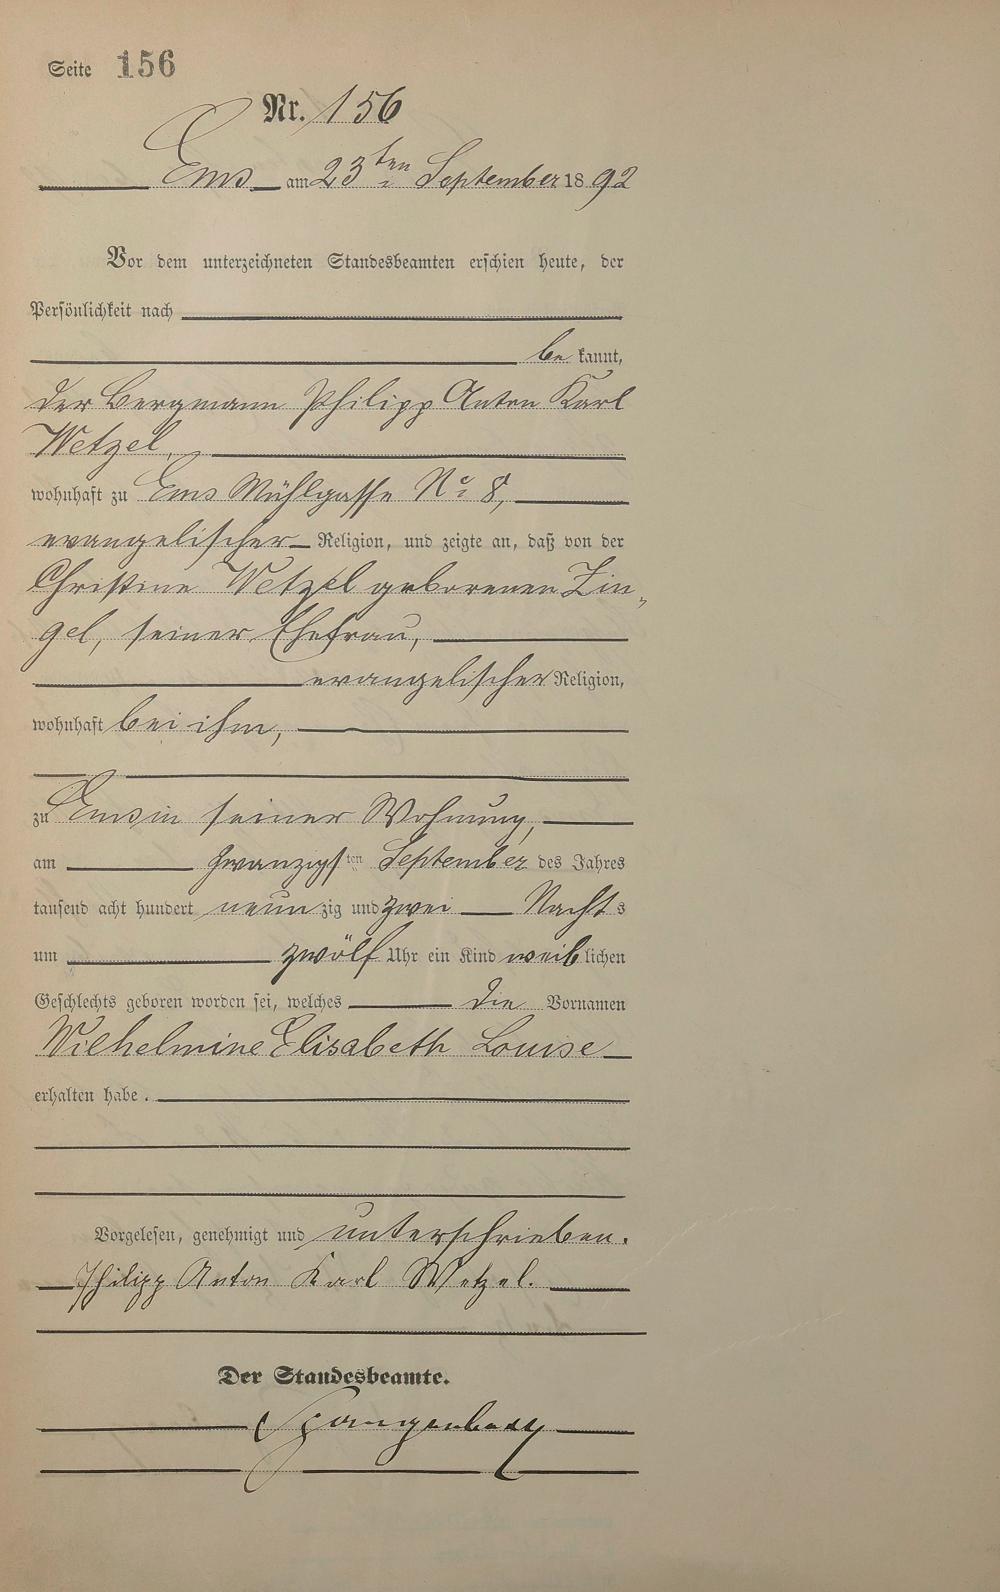 Seite 156
Nr. 156
Ems am 23ten September 1892
Vor dem unterzeichneten Standesbeamten erschien heute, der
Persönlichkeit nach
be kannt,
der Bergmann Philipp Anton Karl
Wetzel,
wohnhaft zu Ems Mühlgasse No 8,
evangelischer Religion, und zeigte an, daß von der
Christine Wetzel geborenen Zin„
gel, seiner Ehefrau,
evangelischer Religion,
wohnhaft bei ihm,
zu Ems in seiner Wohnung,
am zwanzigsten September des Jahres
tausend acht hundert neunzig und zwei Nachts
um zwölf Uhr ein Kind weiblichen
Geschlechts geboren worden sei, welches die Vornamen
Wilhelmine Elisabeth Louise
erhalten habe.
Vorgelesen, genehmigt und unterschrieben.
Philipp Anton Karl Wetzel.
Der Standesbeamte.